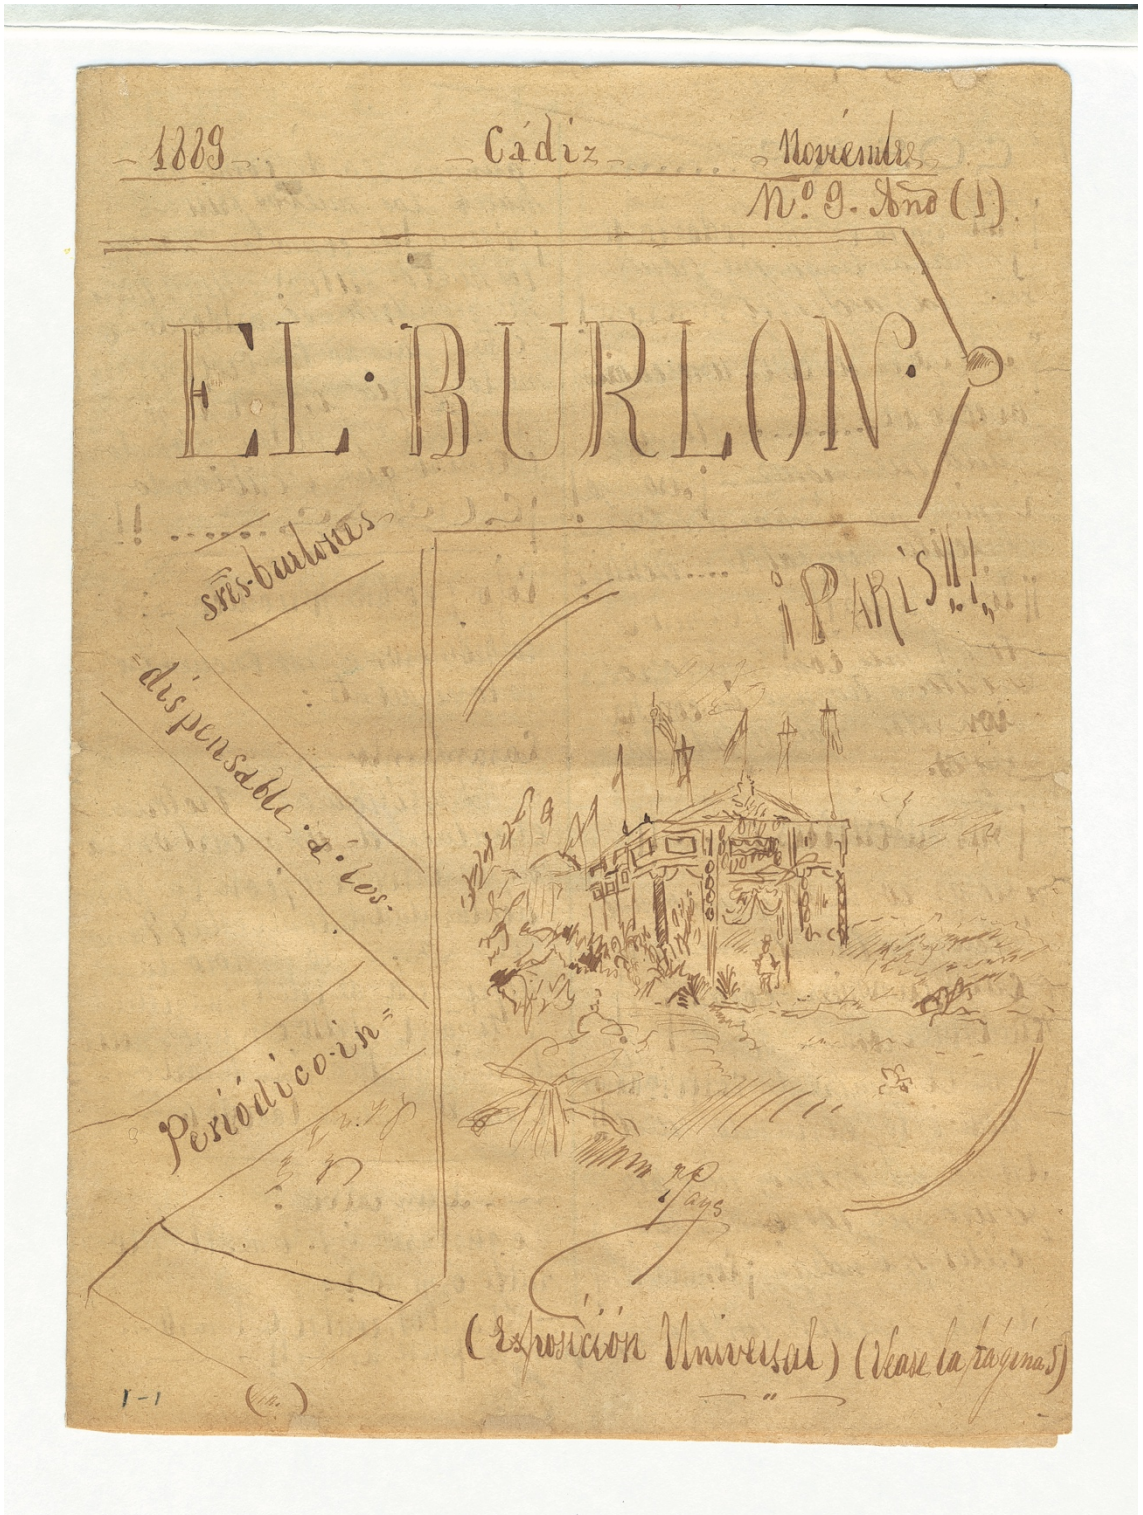 1889 Cádiz Noviembre
Nº. 9. Año (1).
EL·BURLON·
Periódico-in=
=dispensable·á·los·
sres-burlones
¡PARIS!!!
(Exposición Universal) (Vease la página 5)
1-1